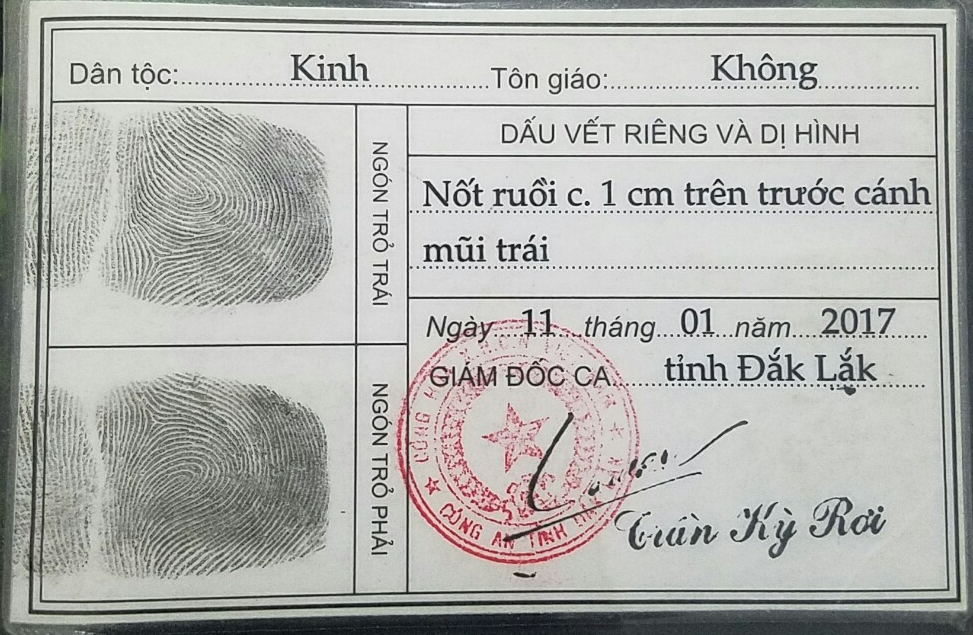 Dân tộc: Kinh Tôn giáo: Không
NGÓN TRỎ TRÁI
DẤU VẾT RIÊNG VÀ DỊ HÌNH
Nốt ruồi c. 1 cm trên trước cánh
mũi trái
NGÓN TRỎ PHẢI
Ngày 11 tháng 01 năm 2017
GIÁM ĐỐC CA tỉnh Đắk Lắk
CÔNG AN TỈNH
Trần Kỳ Rơi